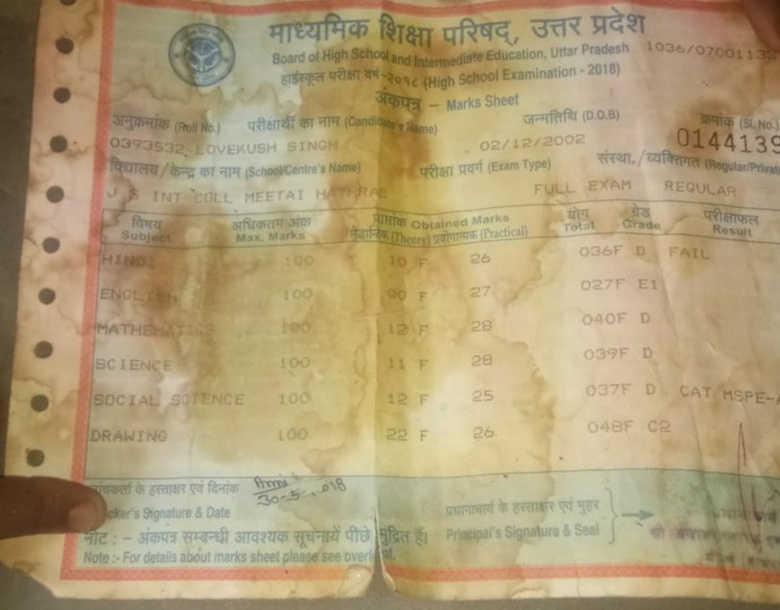 माध्यमिक शिक्षा परिषद्, उत्तर प्रदेश
Board of High School and Intermediate Education, Uttar Pradesh 1036/0700113
हाईस्कूल परीक्षा वर्ष-२०१८ (High School Examination - 2018)
अंकपत्र – Marks Sheet
अनुक्रमांक (Roll No.) परीक्षार्थी का नाम (Candidate's Name) जन्मतिथि (D.O.B) क्रमांक (Sl. No.)
0393532 LOVEKUSH SINGH 02/12/2002 0144139
विद्यालय/केन्द्र का नाम (School/Centre's Name) परीक्षा प्रवर्ग (Exam Type) संस्था./व्यक्तिगत (Regular/Private
J S INT COLL MEETAI HATHRAS FULL EXAM REGULAR
विषय अधिकतम अंक प्राप्तांक Obtained Marks योग ग्रेड परीक्षाफल
Subject Max. Marks (Theory) प्रयोगात्मक (Practical) Total Grade Result
HINDI 100 10 F 26 036F D FAIL
ENGLISH 100 00 F 27 027F E1
MATHEMATICS 100 12 F 28 040F D
SCIENCE 100 11 F 28 039F D
SOCIAL SCIENCE 100 12 F 25 037F D CAT MSPE-
DRAWING 100 22 F 26 048F C2
के हस्ताक्षर एवं दिनांक 30-5-2018
cker's Signature & Date
प्रधानाचार्य के हस्ताक्षर एवं मुहर
Principal's Signature & Seal
नोट : – अंकपत्र सम्बन्धी आवश्यक सूचनायें पीछे मुद्रित हैं।
Note :- For details about marks sheet please see overleaf.